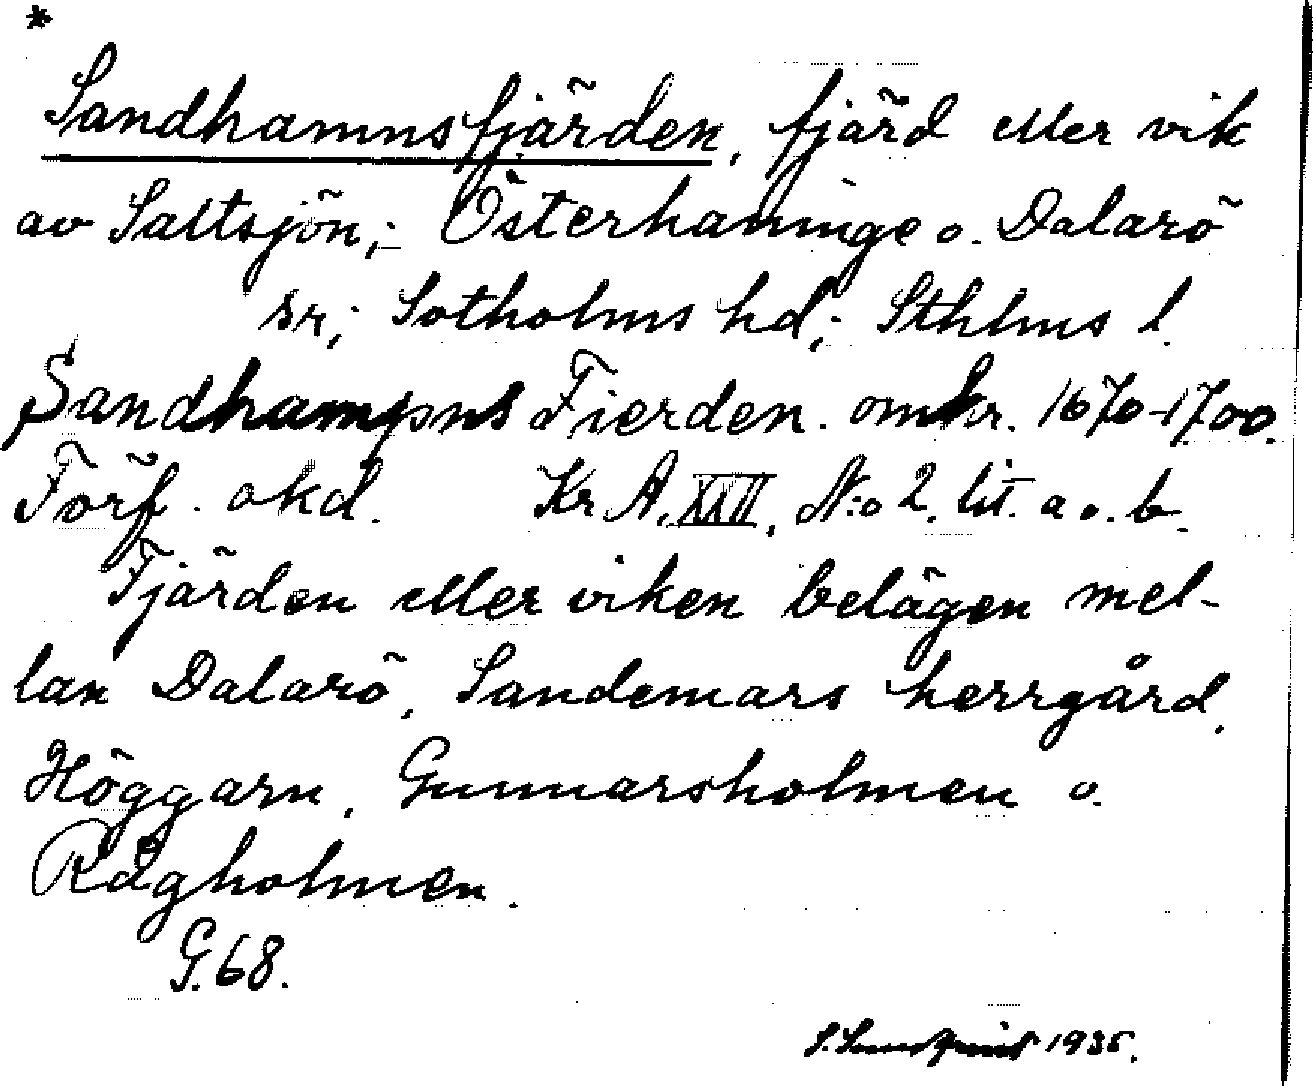 *
Sandhamnsfjärden, fjärd eller vik
av Saltsjön;- Österhaninge o. Dalarö
sr; Sotholms hd; Sthlms l.
Sandhampns Fierden. omkr. 1670-1700.
Förf. okd. Kr A. XXII, N:o 2. lit. a o. b.
Fjärden eller viken belägen mel-
lan Dalarö, Sandemars herrgård,
Höggarn, Gunnarsholmen o.
Rågholmen.
G.68.
S. Lundqvist 1935.